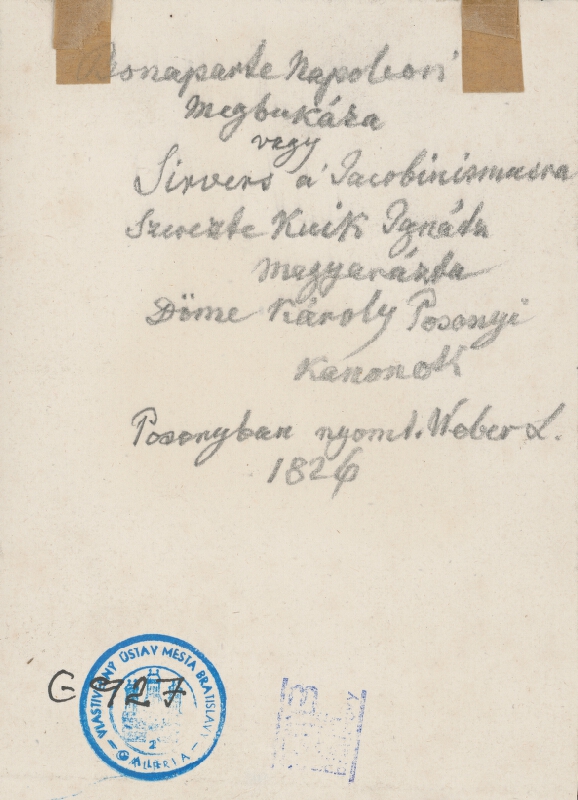 Bonaparte Napoleon
Megbukása
vagy
Sirvers a' Jacobinismusra
Szerezte Kuik Ignátz
magyarázta
Döme Károly Posonyi
Kanonok
Posonyban nyomt. Weber L.
1826
VLASTIVEDNÝ ÚSTAV MESTA BRATISLAVY
2
GALÉRIA
G 927